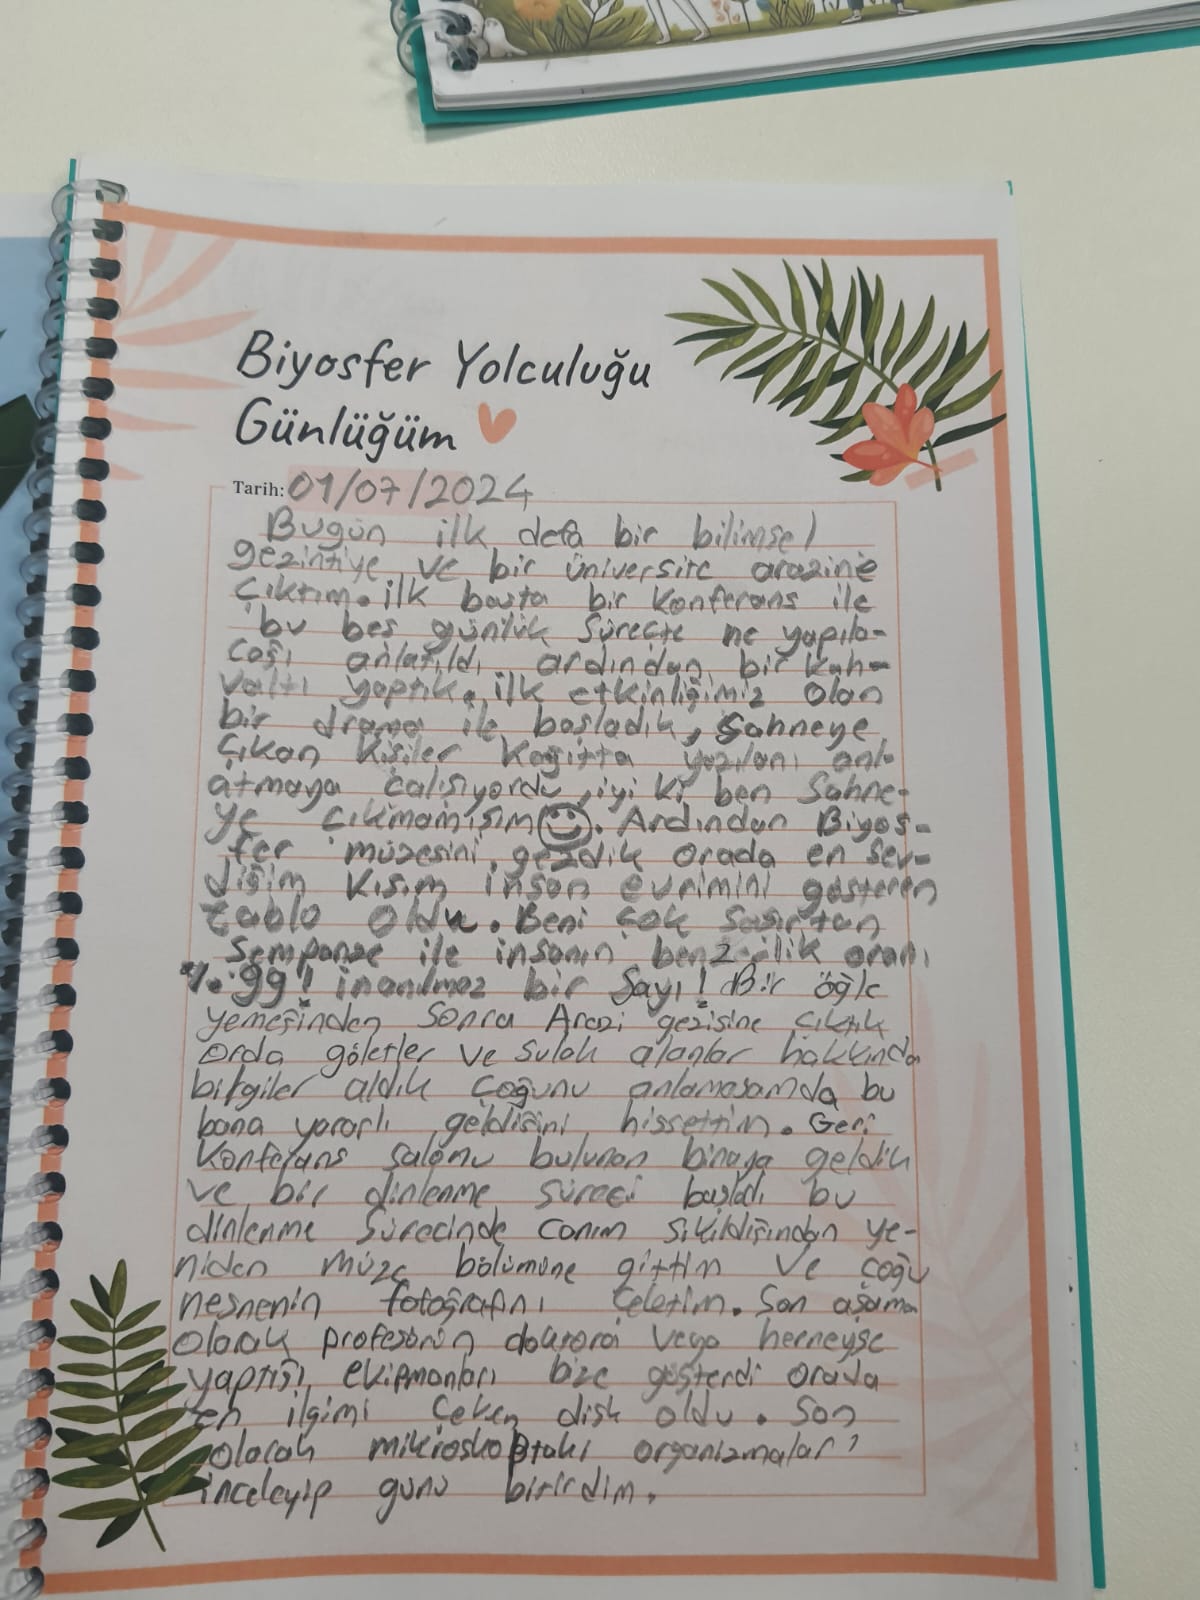 Biyosfer Yolculuğu
Günlüğüm
Tarih: 01/07/2024
Bugün ilk defa bir bilimsel
gezintiye ve bir üniversite arazine
çıktım. ilk başta bir konferans ile
bu beş günlük süreçte ne yapıla-
cağı anlatıldı ardından bir kah-
valtı yaptık, ilk etkinliğimiz olan
bir drama ile başladık, Sahneye
çıkan kişiler kağıtta yazılanı anl-
atmaya çalışıyordu, iyi ki ben Sahne-
ye çıkmamışım. Ardından Biyos-
fer müzesini gezdik orada en sev-
diğim kısım insan evrimini gösteren
tablo oldu. Beni çok şaşırtan
şempanze ile insanın benzerlik oranı
%99! inanılmaz bir Sayı! Bir öğle
yemeğinden sonra Arazi gezisine çıktık
orda göletler ve sulak alanlar hakkında
bilgiler aldık çoğunu anlamasamda bu
bana yararlı geldiğini hissettim. Geri
konferans salonu bulunan binaya geldik
ve bir dinlenme süreci başladı bu
dinlenme sürecinde canım sıkıldığından ye-
niden müze bölümüne gittim ve çoğu
nesnenin fotoğrafını çeletim. Son aşama
olarak profesörün doktorai veya herneyse
yaptığı ekipmanları bize gösterdi orada
en ilgimi çeken disk oldu. Son
olarak mikroskoptaki organizmaları
inceleyip günü bitirdim.